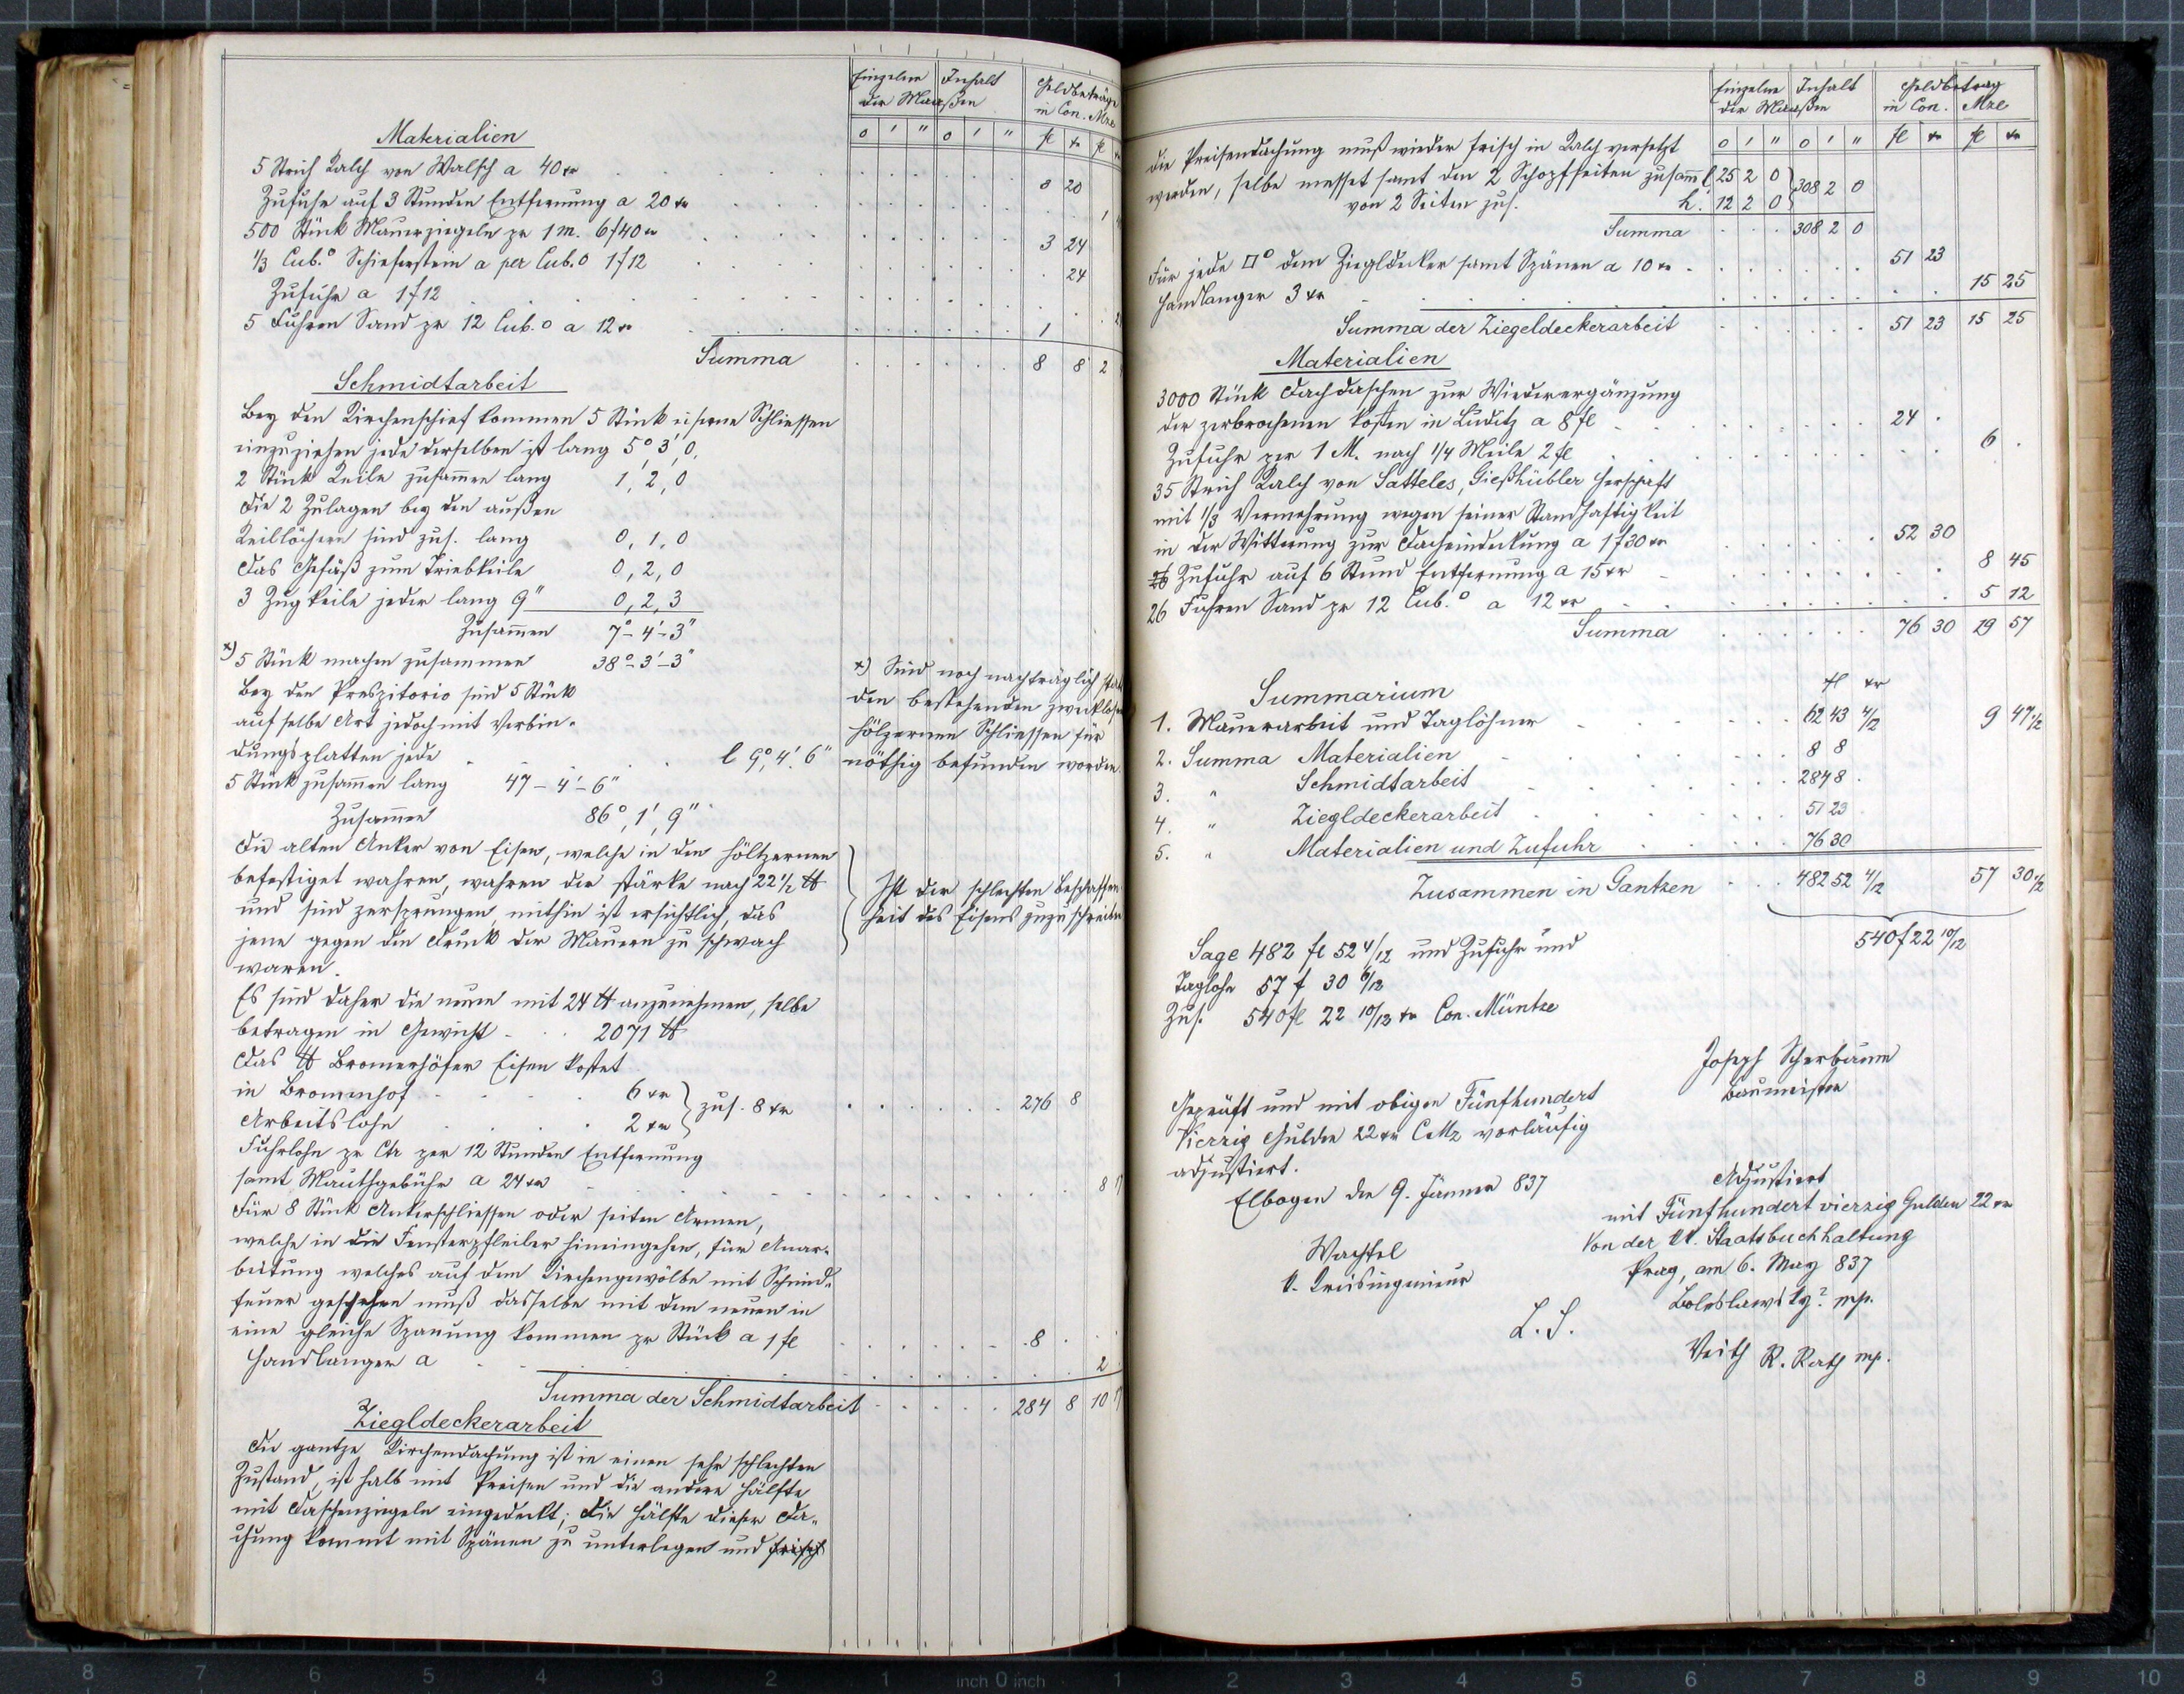 Einzelner Inhalt Geldbeträge
der Maaßen in Con. Mze
o ' " o ' " fl xr fl
Materialien
5 Strich Kalch von Walsch a 40 xr . . . 3 20
Zufuhr auf 3 Stunden Entfernung a 20 xr . . . 1
500 Stück Mauerziegeln pr 1 m. 6f40 xr . . . 3 24
1/3 Cub.° Schieferstein a per Cub.o 1f12 . . . 24
Zufuhr a 1f12 . . .
5 Fuhren Sand pr 12 Cub.o a 12 xr . . . 1
Summa . . . 8 8 2
Schmidtarbeit
Bey den Kirchenschief kommen 5 Stück eiserne Schliessen
einzuziehen jede derselben ist lang 5° 3' 0,
2 Stück Keile zusammen lang 1, 2, 0
Die 2 Zulagen bey den außen
Keillöchern sind zus. lang 0, 1, 0
Das Gefäß zum Triebkeile 0, 2, 0
3 Zugkeile jeder lang 9" 0, 2, 3
Zusammen 7° - 4' - 3"
x) 5 Stück machen zusammen 38° - 3' - 3"
Bey den Preszitorio sind 5 Stück
auf selbe Art jedoch mit Verbin-
dungsplatten jede . . . l 9°, 4'. 6"
5 Stück zusammen lang 47 - 4' - 6"
Zusammen 86°, 1', 9"
x) Sind noch nachträglich statt
den bestehenden zwecklosen
hölzernen Schliessen für
nöthig befunden worden.
Die alten Anker von Eisen, welche in den höltzernen
befestiget wahren, wahren der stärke nach 22 1/2 ℔
und sind zersprungen, mithin ist ersichtlich, das
jene gegen den Druck der Mauern zu schwach
waren.
Ist der schlechten Beschaffen-
heit des Eisens zuzuschreiben
Es sind daher die neuen mit 24 ℔ anzunehmen, selbe
betragen in Gewicht . . . 2071 ℔
Das ℔ Bromerhöfer Eisen kostet
in Bromenhof . . . 6 xr } zus. 8 xr . . . 276 8
Arbeitslohn . . . 2 xr
Fuhrlohn pr Ctr per 12 Stunden Entfernung
samt Mauthgebühr a 24 xr . . . 8 17
Für 8 Stück Ankerschliessen oder seiten Armen,
welche in die Fensterpfleiler hineingehen, für Anar-
beitung welches auf dem Kirchengewölbe mit Schmid-
feuer geschehen muß dasselbe mit den neuen in
eine gleiche Spannung kommen pr Stück a 1 fl . . . 8 .
Handlanger a . . . 2
Summa der Schmidtarbeit . . . 284 8 10 17
Ziegldeckerarbeit
Die gantze Kirchendachung ist in einen sehr schlechten
Zustand, ist halb mit Preisen und die andere Hälfte
mit Daschenziegeln eingedeckt; die Hälfte dieser Da-
chung kommt mit Spänen zu unterlegen und frisch
Einzelner Inhalt Geldbetrag
der Maaßen in Con. Mze
o ' " o ' " fl xr fl xr
die Preisendachung muß wieder frisch in Kalch versetzt
werden, selbe messet samt den 2 Schopfseiten zusamm l. 25 2 0 } 308 2 0
von 2 Seiten zus. h. 12 2 0
Summa . . . 308 2 0
Für jede □° dem Ziegldecker samt Spänen a 10 xr . . . 51 23
Handlanger 3 xr . . . 15 25
Summa der Ziegeldeckerarbeit . . . 51 23 15 25
Materialien
3000 Stück Dachdaschen zur Wiederergänzung
der zerbrochenen kosten in Luditz a 8 fl . . . 24 .
Zufuhr per 1 M. nach 1/4 Meile 2 fl . . . 6 .
35 Strich Kalch von Satteles, Gießhübler Herschaft
mit 1/3 Vermehrung wegen seiner Standhaftigkeit
in der Witterung zur Dacheindeckung a 1f30 xr . . . 52 30
Zufuhr auf 6 Stund Entfernung a 15 xr . . . 8 45
26 Fuhren Sand pr 12 Cub.° a 12 xr . . . 5 12
Summa . . . 76 30 19 57
Summarium fl xr
1. Mauerarbeit und Taglöhner . . . 62 43 4/12 9 47 1/2
2. Summa Materialien . . . 8 8
3. " Schmidtarbeit . . . 284 8 .
4. " Ziegldeckerarbeit . . . 51 23
5. " Materialien und Zufuhr . . . 76 30
Zusammen in Gantzen . . . 482 52 4/12 57 30 1/2
540f 22 10/12
Sage 482 fl 52 4/12 und Zufuhr und
Taglohn 57 f 30 6/12
Zus. 540 fl 22 10/12 xr Con. Müntze
Joseph Scherbaum
Baumeister
Geprüft und mit obigen Fünfhundert
Vierzig Gulden 22 xr CMz vorläufig
adjustiert.
Elbogen den 9. Jänner 837
Wachtel
k. Kreisingenieur
Adjustiert
mit Fünfhundert vierzig Gulden 22 xr
Von der kk. Staatsbuchhaltung
Prag, am 6. May 837
Boleslawsky? mp.
L. S.
Veith R. Rath mp.
8 7 6 5 4 3 2 1 inch 0 inch 1 2 3 4 5 6 7 8 9 10